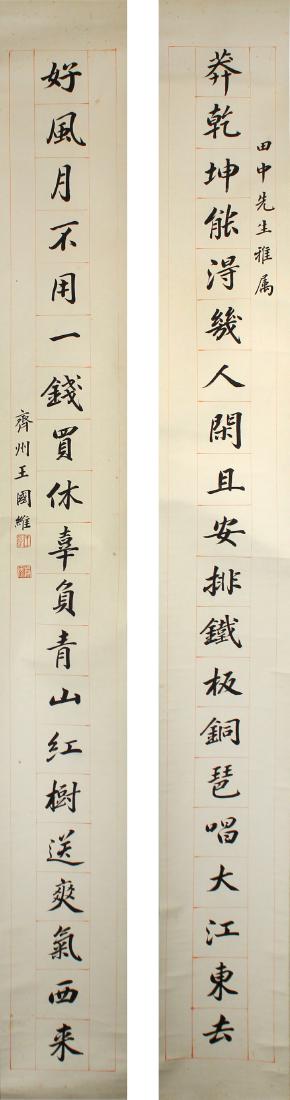 田中先生雅属
莽乾坤能得幾人閑且安排鐵板銅琶唱大江東去
好風月不用一錢買休辜負青山紅樹送爽氣西来
齊州王國維